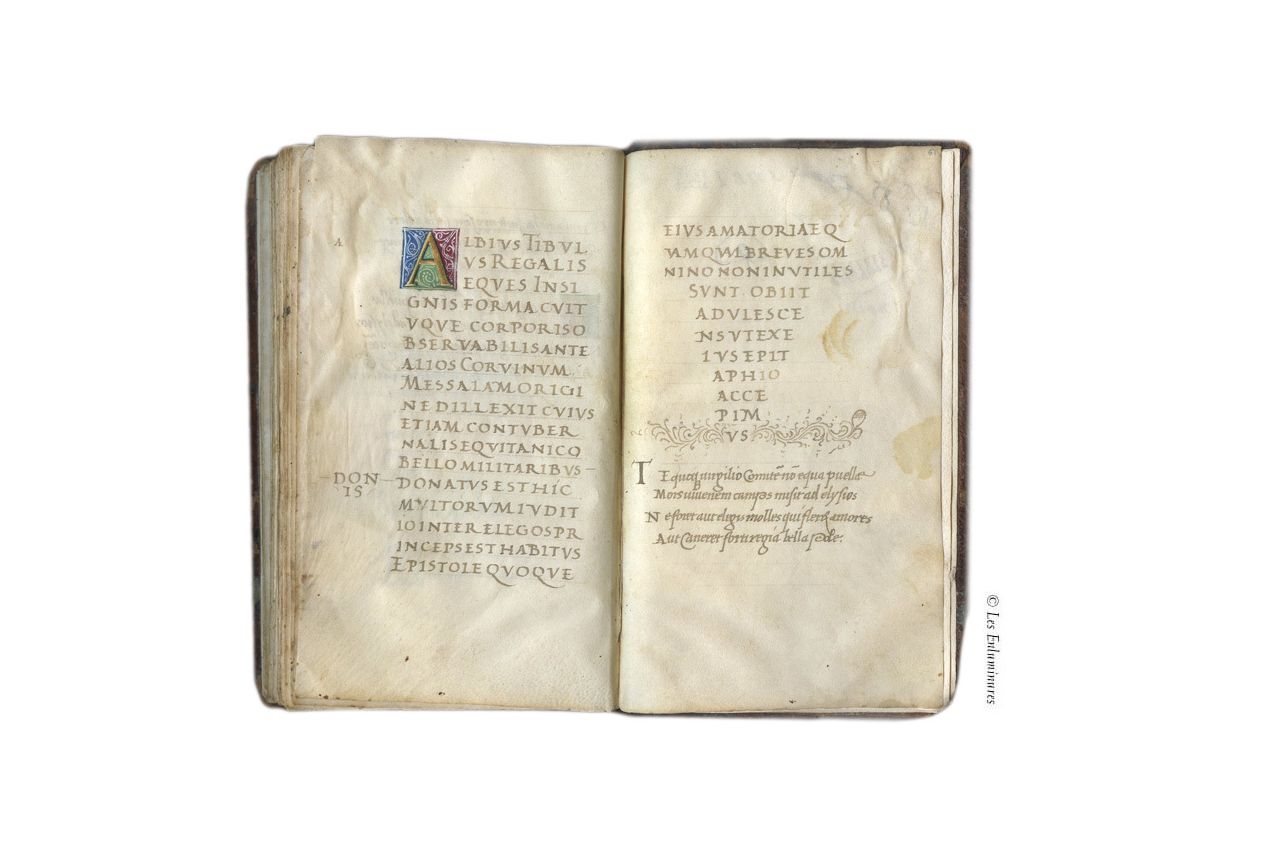 A
ALBIVS TIBVL
VS REGALIS
EQVES INSI
GNIS FORMA CVIT
VQVE CORPORIS O
BSERVABILIS ANTE
ALIOS CORVINVM
MESSALAM ORIGI
NE DILLEXIT CVIVS
ETIAM CONTVBER
NALIS EQVITANICO
BELLO MILITARIBVS
DON
IS
DONATVS EST HIC
MVLTORVM IVDIT
IO INTER ELEGOS PR
INCEPS EST HABITVS
EPISTOLE QVOQVE
EIVS AMATORIAE Q
VAMQVVL BREVES OM
NINO NON INVTILES
SVNT OBIIT
ADVLESCE
NS VT EXE
IVS EPIT
APHIO
ACCE
PIM
VS
Te quoq virgilio Comitē nō equa puellæ
Mors iuuenem campos misit ad elysios
Ne foret aut elegis molles qui fleret amores
Aut Caneret forti regia bella pede:
© Les Enluminures